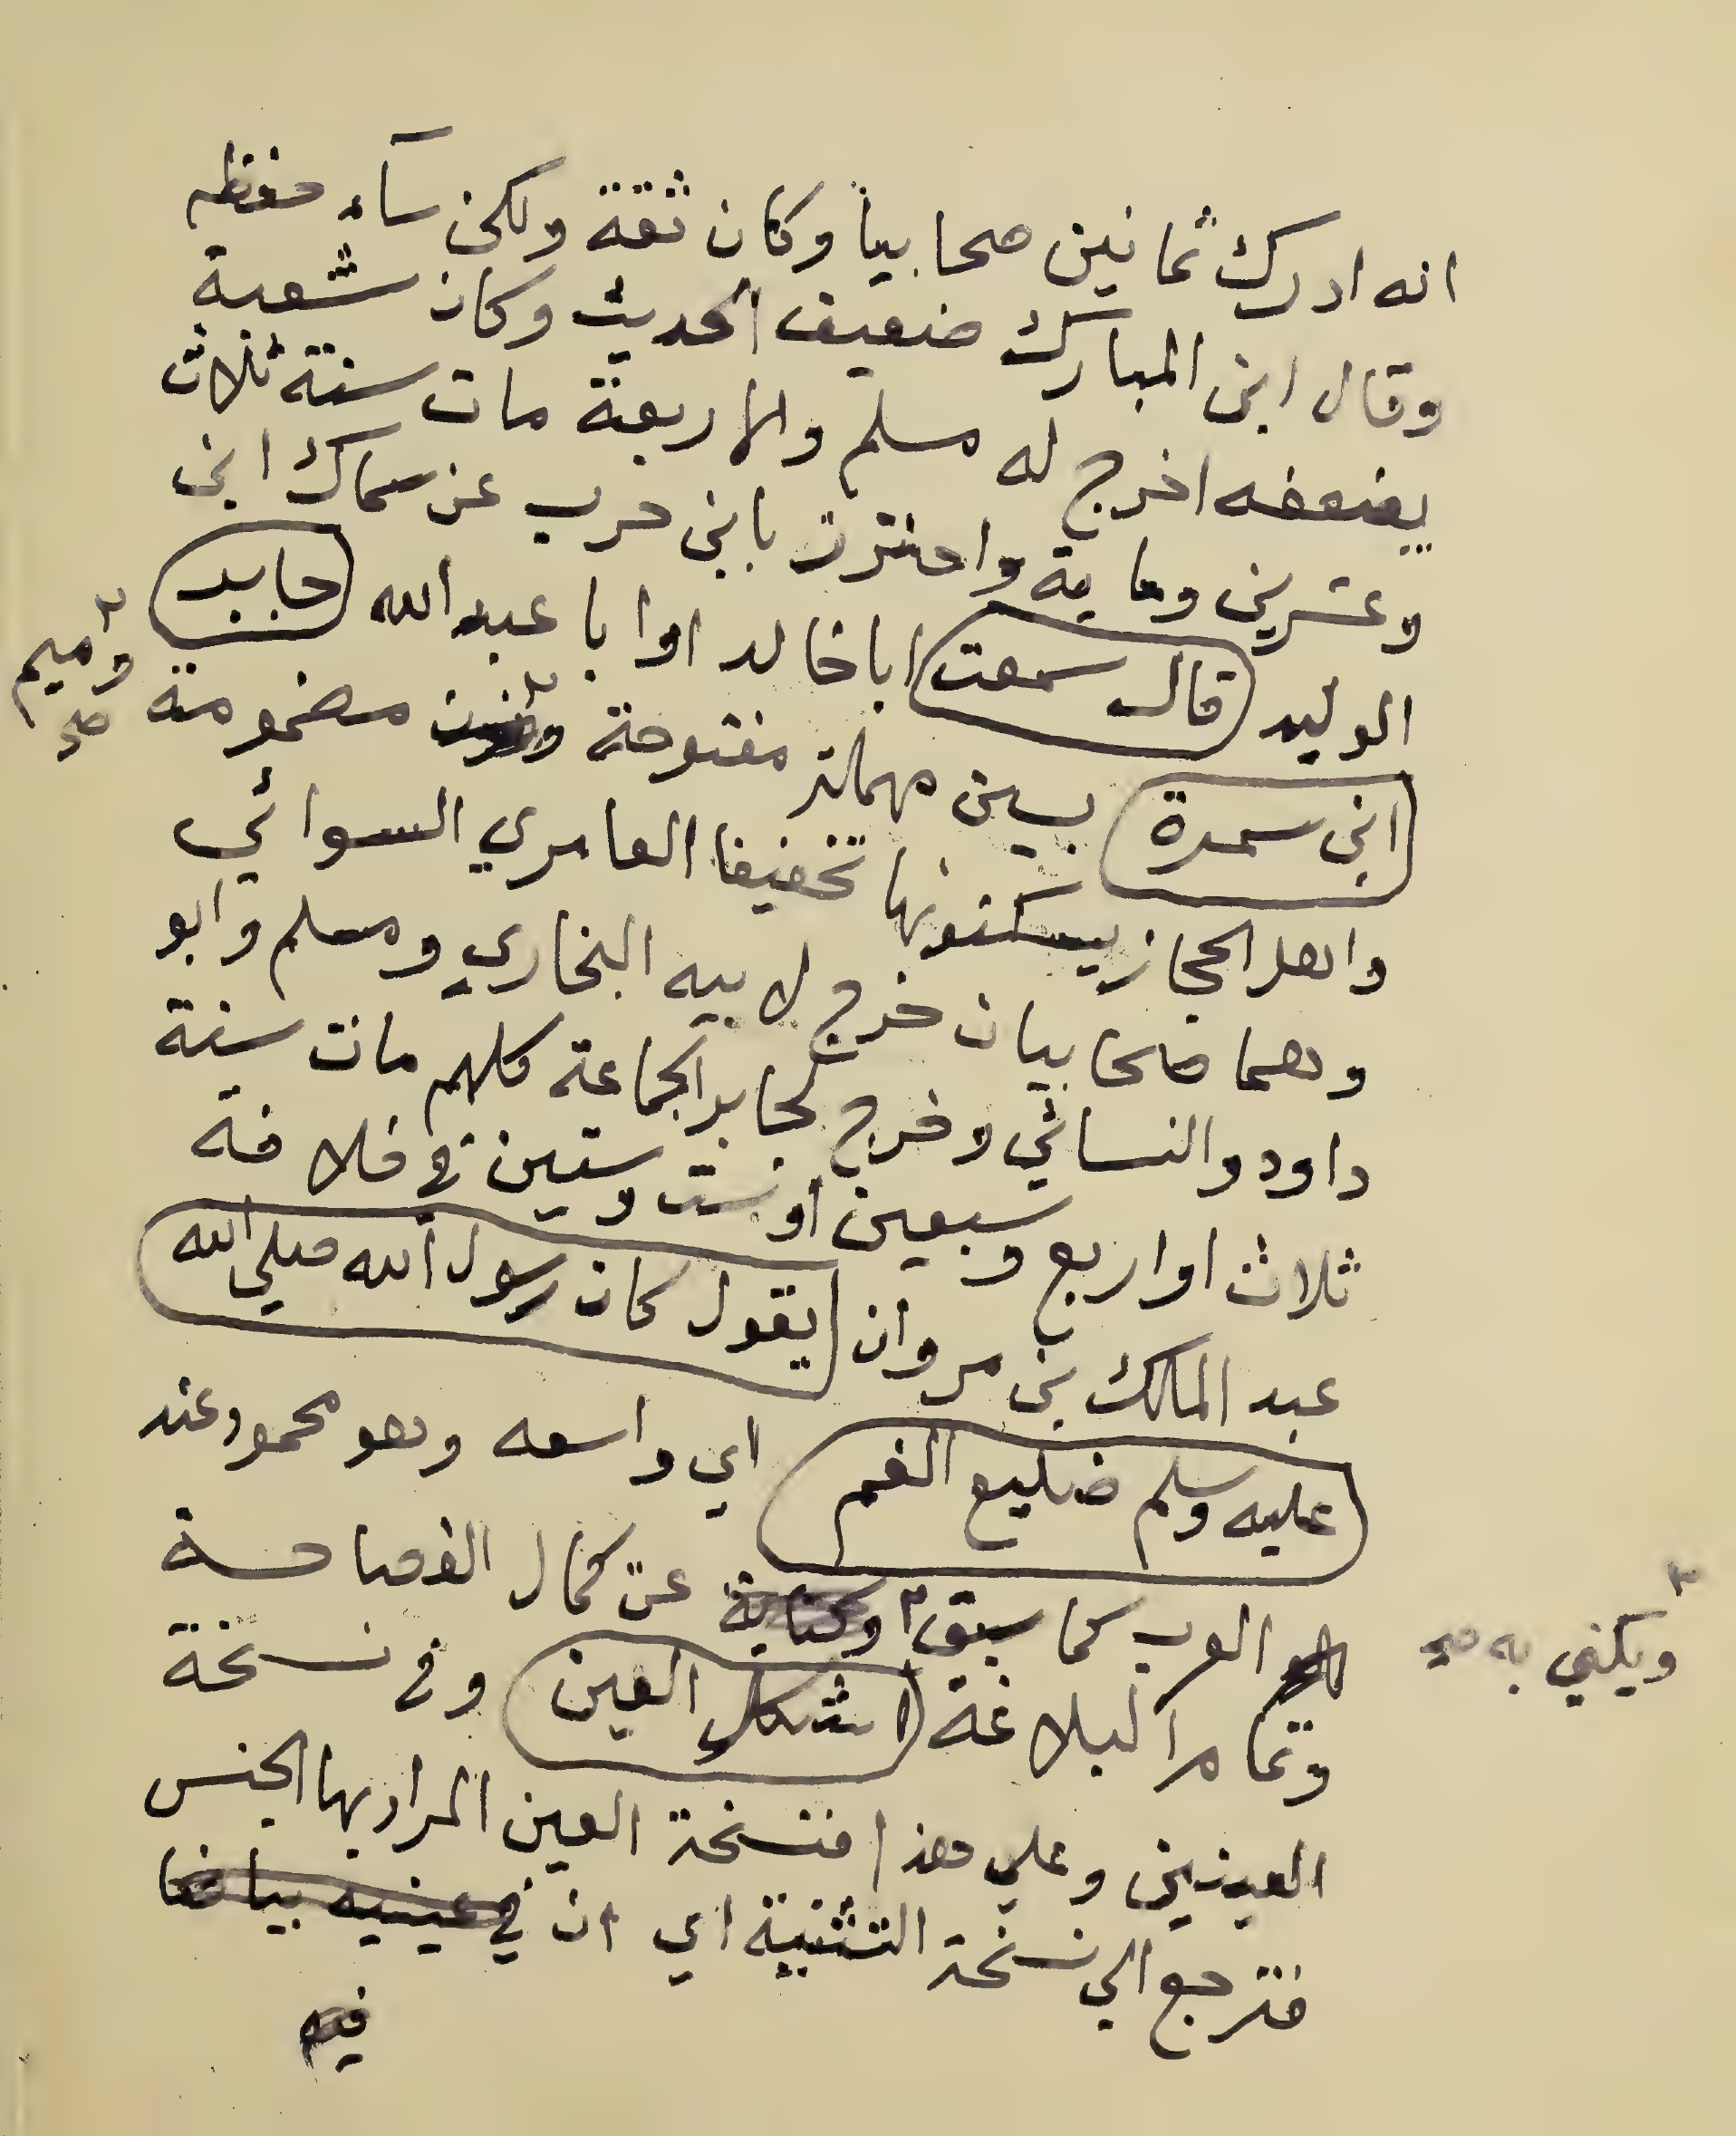 انه ادرك ثمانين صحابيا وكان ثقة ولكن سآء حفظه
وقال ابن المبارك ضعيف الحديث وكان شعبة
يضعفه اخرج له مسلم والاربعة مات سنة ثلاث
وعشرين وماية واحترز بابن حرب عن سماك ابن
الوليد قال سمعت اباخالد اوابا عبد الله جابر
ابن سمرة بسين مهملة مفتوحة مضمومة
وميم صح
واهل الحجاز يسكنونها تخفيفا العامري السوائي
وهما صحابيان خرج لابيه البخاري ومسلم وابو
داود والنسائي وخرج لجابر الجماعة كلهم مات سنة
ثلاث اواربع وسبعين أو ست وستين في خلافة
عبد المالك بن مروان يقول كان رسول الله صلي الله
عليه وسلم ضليع الفم اي واسعه وهو محمود عند
العرب كما سبق وكناية عن كمال الفصاحة
ويكني به صح
وتمام البلاغة اشكل العين وفي نسخة
العينين وعلي هذا فنسخة العين المراد بها الجنس
فترجع الي نسخة التثنية اي ان في عينيه بياضا
فيه